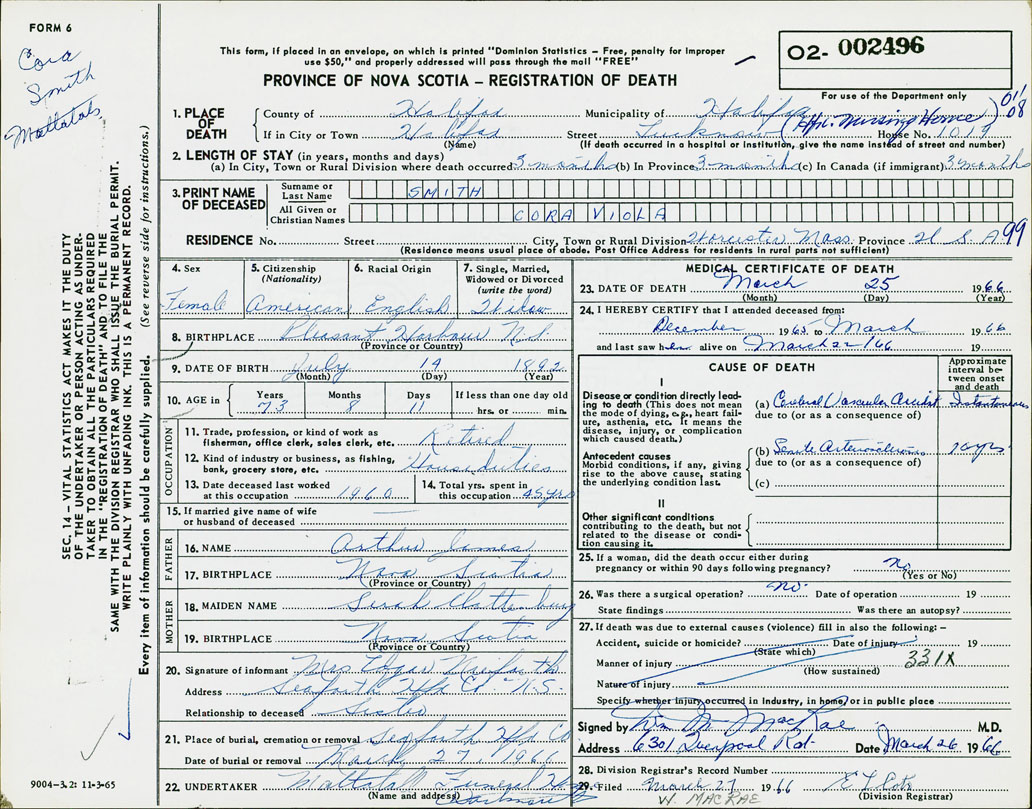 FORM 6
Cora
Smith
Mattatals
This form, if placed in an envelope, on which is printed "Dominion Statistics – Free, penalty for improper
use $50," and properly addressed will pass through the mail "FREE"
PROVINCE OF NOVA SCOTIA – REGISTRATION OF DEATH
O2- 002496
For use of the Department only
011
08
1. PLACE OF DEATH
County of Halifax Municipality of Halifax
(Hfx. Nursing Home)
If in City or Town Halifax Street Lucknow House No. 1019
(Name) (If death occurred in a hospital or institution, give the name instead of street and number)
2. LENGTH OF STAY (in years, months and days)
(a) In City, Town or Rural Division where death occurred 3 months (b) In Province 3 months (c) In Canada (if immigrant) 3 months
3. PRINT NAME OF DECEASED
Surname or Last Name SMITH
All Given or Christian Names CORA VIOLA
RESIDENCE No. Street City, Town or Rural Division Worcister Mass. Province U S A 99
(Residence means usual place of abode. Post Office Address for residents in rural parts not sufficient)
4. Sex Female
5. Citizenship (Nationality) American
6. Racial Origin English
7. Single, Married, Widowed or Divorced (write the word) Widow
8. BIRTHPLACE Pleasant Harbour N.S
(Province or Country)
9. DATE OF BIRTH July 14 1892
(Month) (Day) (Year)
10. AGE in Years 73 Months 8 Days 11 If less than one day old hrs. or min.
OCCUPATION
11. Trade, profession, or kind of work as fisherman, office clerk, sales clerk, etc. Retired
12. Kind of industry or business, as fishing, bank, grocery store, etc. House duties
13. Date deceased last worked at this occupation 1960
14. Total yrs. spent in this occupation 45 yrs
15. If married give name of wife or husband of deceased —
FATHER
16. NAME Arthur James
17. BIRTHPLACE Nova Scotia
(Province or Country)
MOTHER
18. MAIDEN NAME Sarah Clattenburg
19. BIRTHPLACE Nova Scotia
(Province or Country)
20. Signature of informant Mrs. Edgar
Address Seaforth Hfx Co. N.S.
Relationship to deceased Sister
21. Place of burial, cremation or removal Seaforth Hfx Co
Date of burial or removal March 27, 1966
22. UNDERTAKER Mattatall Funeral Home
(Name and address) Dartmouth
MEDICAL CERTIFICATE OF DEATH
23. DATE OF DEATH March 25 1966
(Month) (Day) (Year)
24. I HEREBY CERTIFY that I attended deceased from:
December 1965 to March 1966
and last saw her alive on March 22/66 19
CAUSE OF DEATH
Approximate interval between onset and death
I
Disease or condition directly leading to death (This does not mean the mode of dying, e.g., heart failure, asthenia, etc. It means the disease, injury, or complication which caused death.)
(a) Cerebral Vascular Accident Instantaneous
due to (or as a consequence of)
Antecedent causes
Morbid conditions, if any, giving rise to the above cause, stating the underlying condition last.
(b) Senile Arteriosclerosis 10 yrs
due to (or as a consequence of)
(c)
II
Other significant conditions contributing to the death, but not related to the disease or condition causing it.
25. If a woman, did the death occur either during pregnancy or within 90 days following pregnancy? No
(Yes or No)
26. Was there a surgical operation? No Date of operation 19
State findings Was there an autopsy?
27. If death was due to external causes (violence) fill in also the following: –
Accident, suicide or homicide? Date of injury 19
(State which)
Manner of injury 331X
(How sustained)
Nature of injury
Specify whether injury occurred in industry, in home, or in public place
Signed by Wm M MacRae M.D.
Address 6301 Liverpool Rd. Date March 26 1966
28. Division Registrar's Record Number
29. Filed March 27 1966
(Division Registrar)
W. MACRAE
SEC. 14 – VITAL STATISTICS ACT MAKES IT THE DUTY
OF THE UNDERTAKER OR PERSON ACTING AS UNDER-
TAKER TO OBTAIN ALL THE PARTICULARS REQUIRED
IN THE "REGISTRATION OF DEATH" AND TO FILE THE
SAME WITH THE DIVISION REGISTRAR WHO SHALL ISSUE THE BURIAL PERMIT.
WRITE PLAINLY WITH UNFADING INK. THIS IS A PERMANENT RECORD.
Every item of information should be carefully supplied. (See reverse side for instructions.)
9004–3.2: 11-3-65